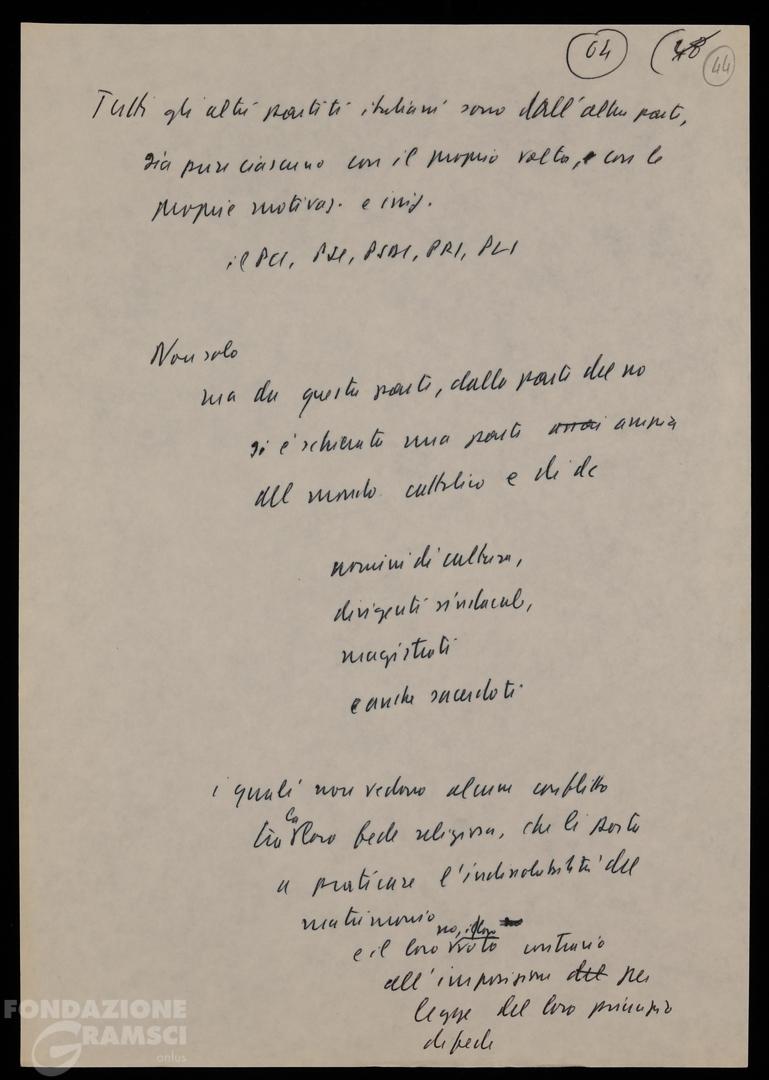 64 (48 44
Tutti gli altri partiti italiani sono dall'altra parte,
sia pure ciascuno con il proprio volto, e con le
proprie motivaz. e iniz.
il PCI, PSI, PSDI, PRI, PLI
Non solo
ma da questa parte, dalla parte del no
si è schierata una parte assai ampia
del mondo cattolico e di dc
uomini di cultura,
dirigenti sindacali,
magistrati
e anche sacerdoti
i quali non vedono alcun conflitto
tra la loro fede religiosa, che li porta
a praticare l'indissolubilità del
matrimonio
no, il loro
e il loro voto contrario
all'imposizione del per
legge del loro principio
di fede
FONDAZIONE
GRAMSCI
onlus